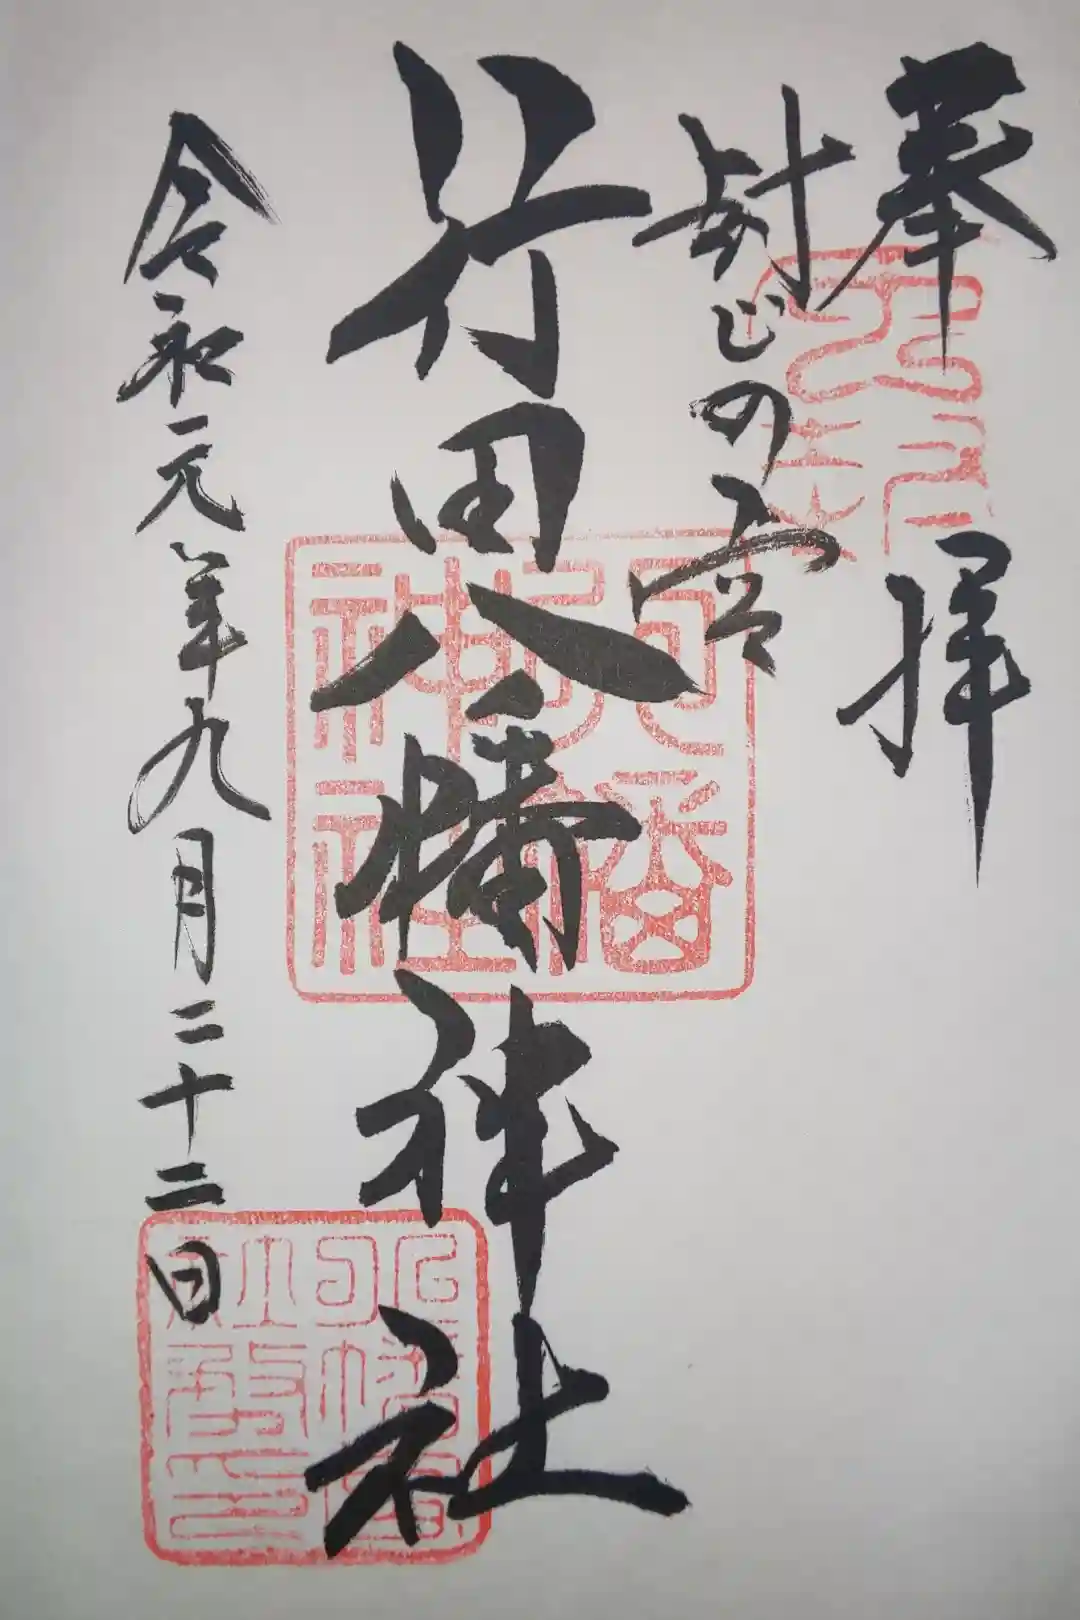 奉拝
封じの宮
行田八幡神社
令和元年九月二十二日
八幡
神社